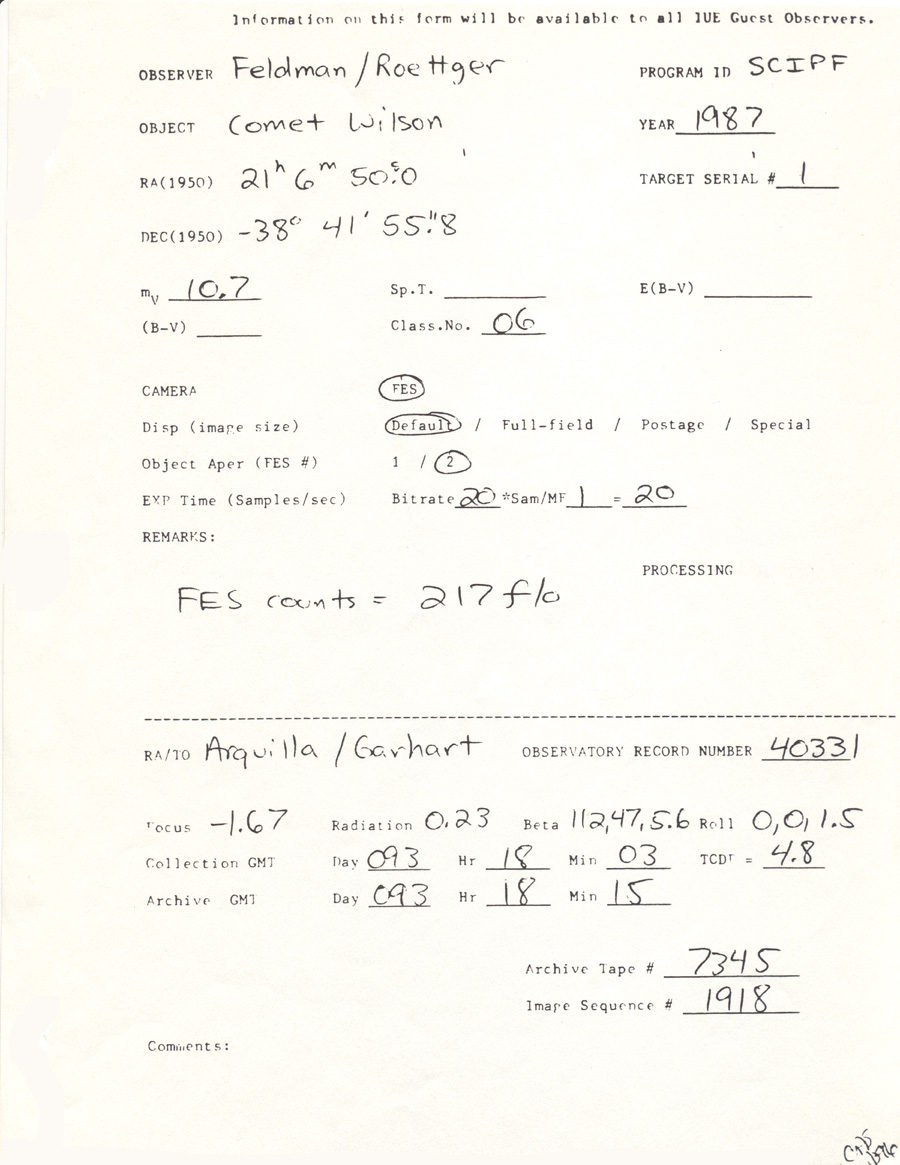 Information on this form will be available to all IUE Guest Observers.
OBSERVER Feldman/Roettger PROGRAM ID SCIPF
OBJECT Comet Wilson YEAR 1987
RA(1950) 21h 6m 50s.0 TARGET SERIAL # 1
DEC(1950) -38° 41' 55".8
mV 10.7 Sp.T. E(B-V)
(B-V) Class.No. 06
CAMERA FES
Disp (image size) Default / Full-field / Postage / Special
Object Aper (FES #) 1 / 2
EXP Time (Samples/sec) Bitrate 20 *Sam/MF 1 = 20
REMARKS:
PROCESSING
FES counts = 217 f/o
RA/TO Arquilla/Garhart OBSERVATORY RECORD NUMBER 40331
Focus -1.67 Radiation 0.23 Beta 112,47,5.6 Roll 0,0,1.5
Collection GMT Day 093 Hr 18 Min 03 TCDT = 4.8
Archive GMT Day 093 Hr 18 Min 15
Archive Tape # 7345
Image Sequence # 1918
Comments: